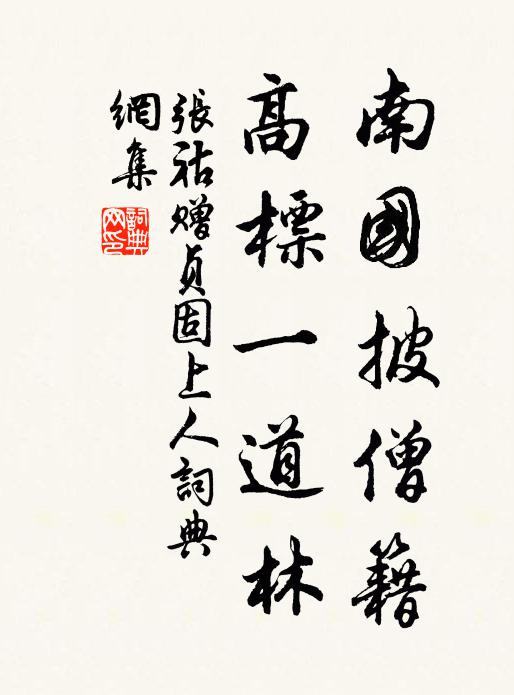 南國披僧籍
高標一道林
張祜贈貞固上人詞典
網集
詞典
网印